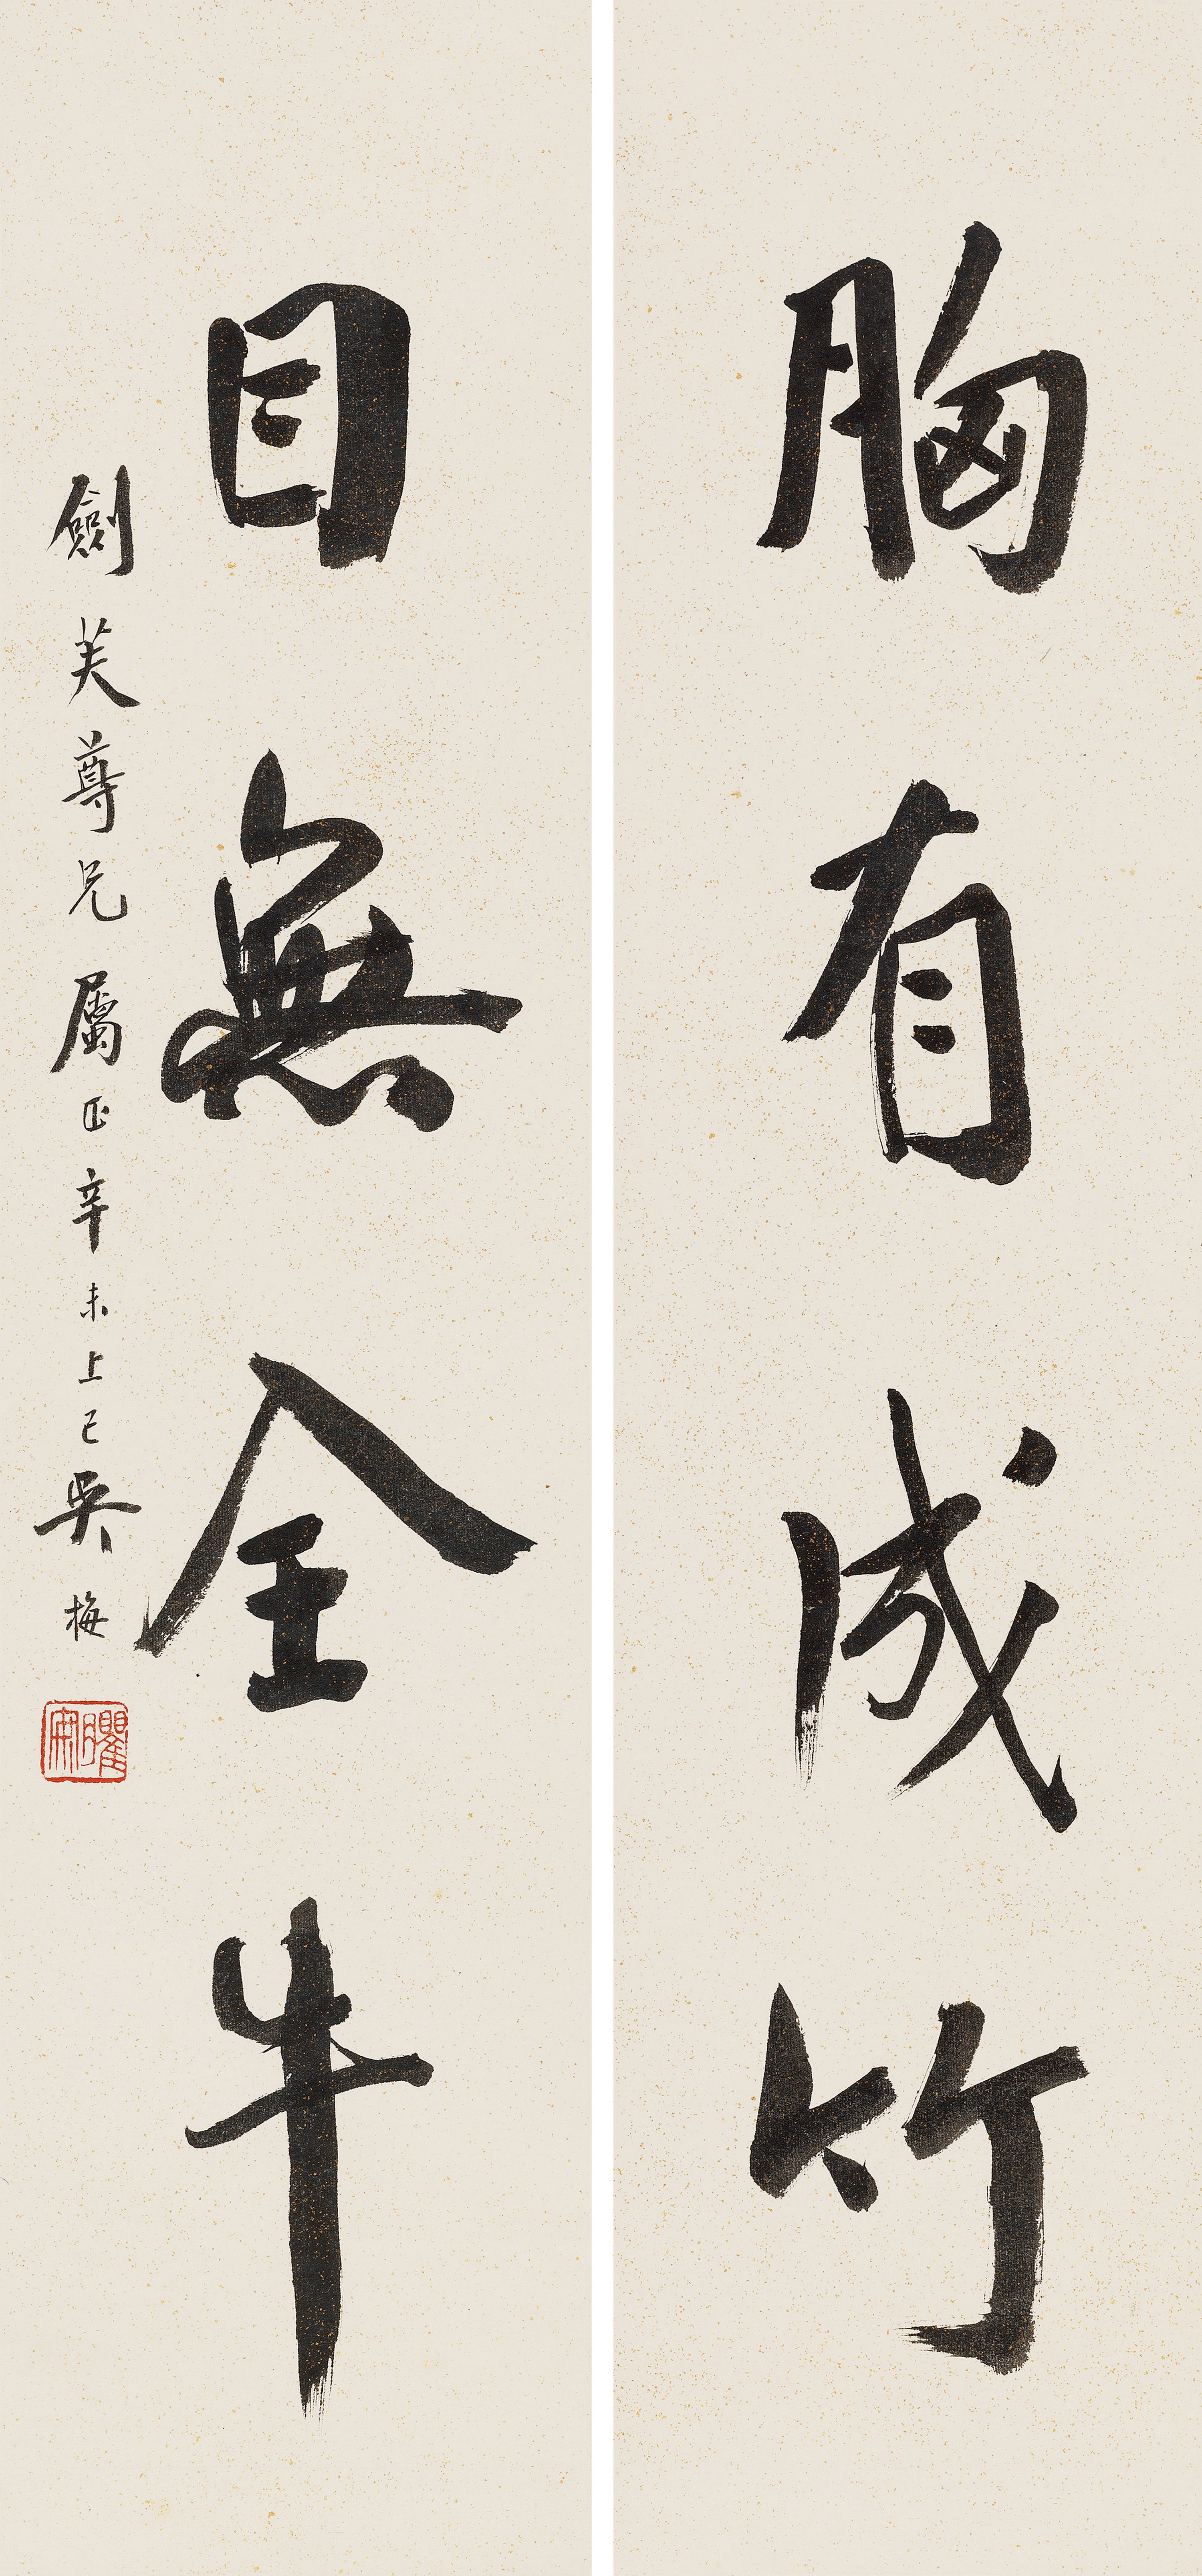 胸有成竹
目無全牛
劍芙尊兄屬正辛未上巳吳梅
瞿安